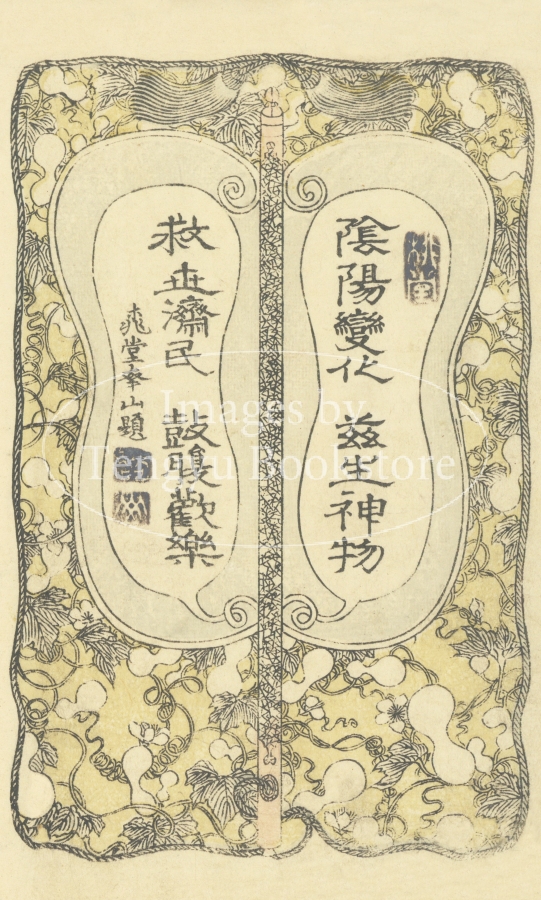 陰陽變化 茲生神物
救世濟民 鼓腹歡樂
堂奉山題
Images by
Tengyu Bookstore